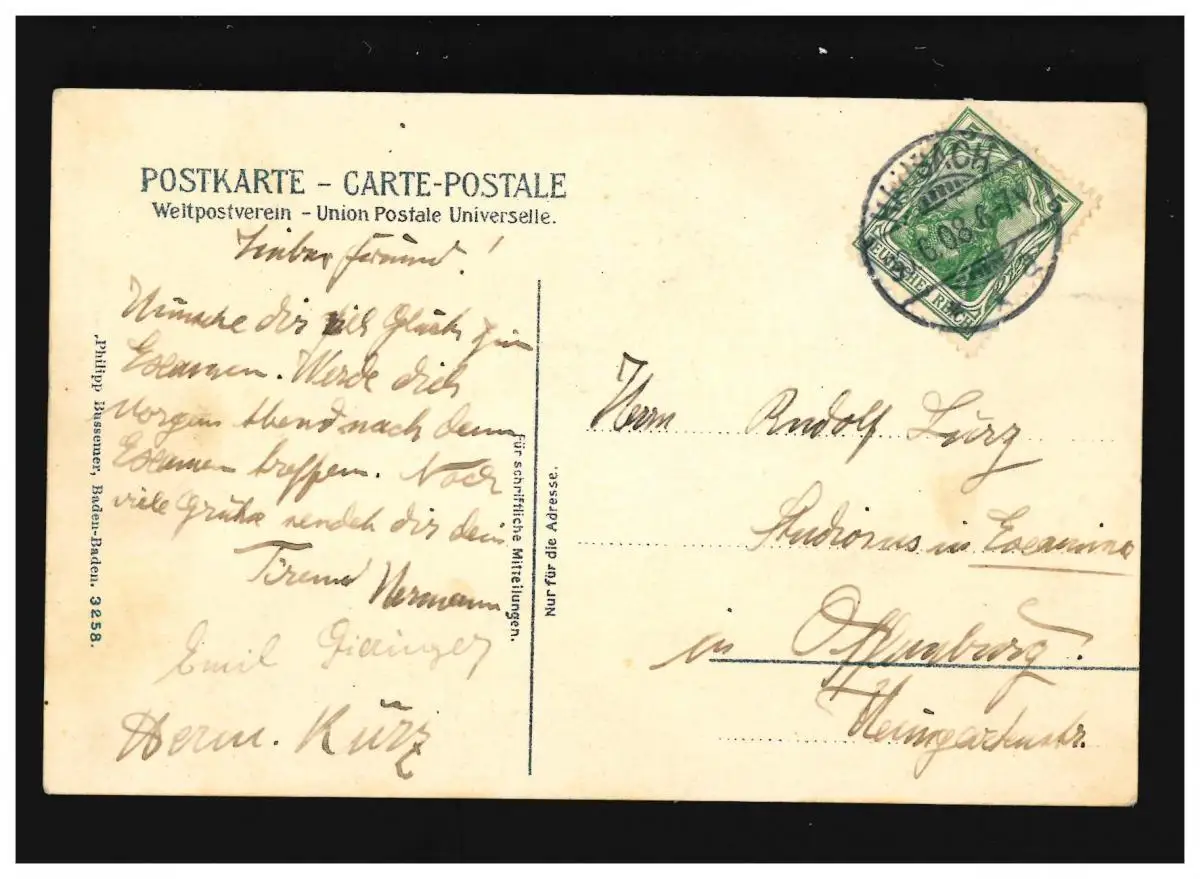 POSTKARTE – CARTE-POSTALE
Weltpostverein – Union Postale Universelle.
Lieber Freund!
Wünsche dir viel Glück zum
Examen. Werde dich
Morgen Abend nach dem
Examen treffen. Noch
viele Grüße sendet dir dein
Freund Hermann
Emil
Herm. Kurz
Philipp Bussemer, Baden-Baden. 3258.
Für schriftliche Mitteilungen.
Nur für die Adresse.
5 5
DEUTSCHES REICH
08.6-7N
Herrn Rudolf Lurz
Studiosus in Examine
in Offenburg.
Weingartenstr.